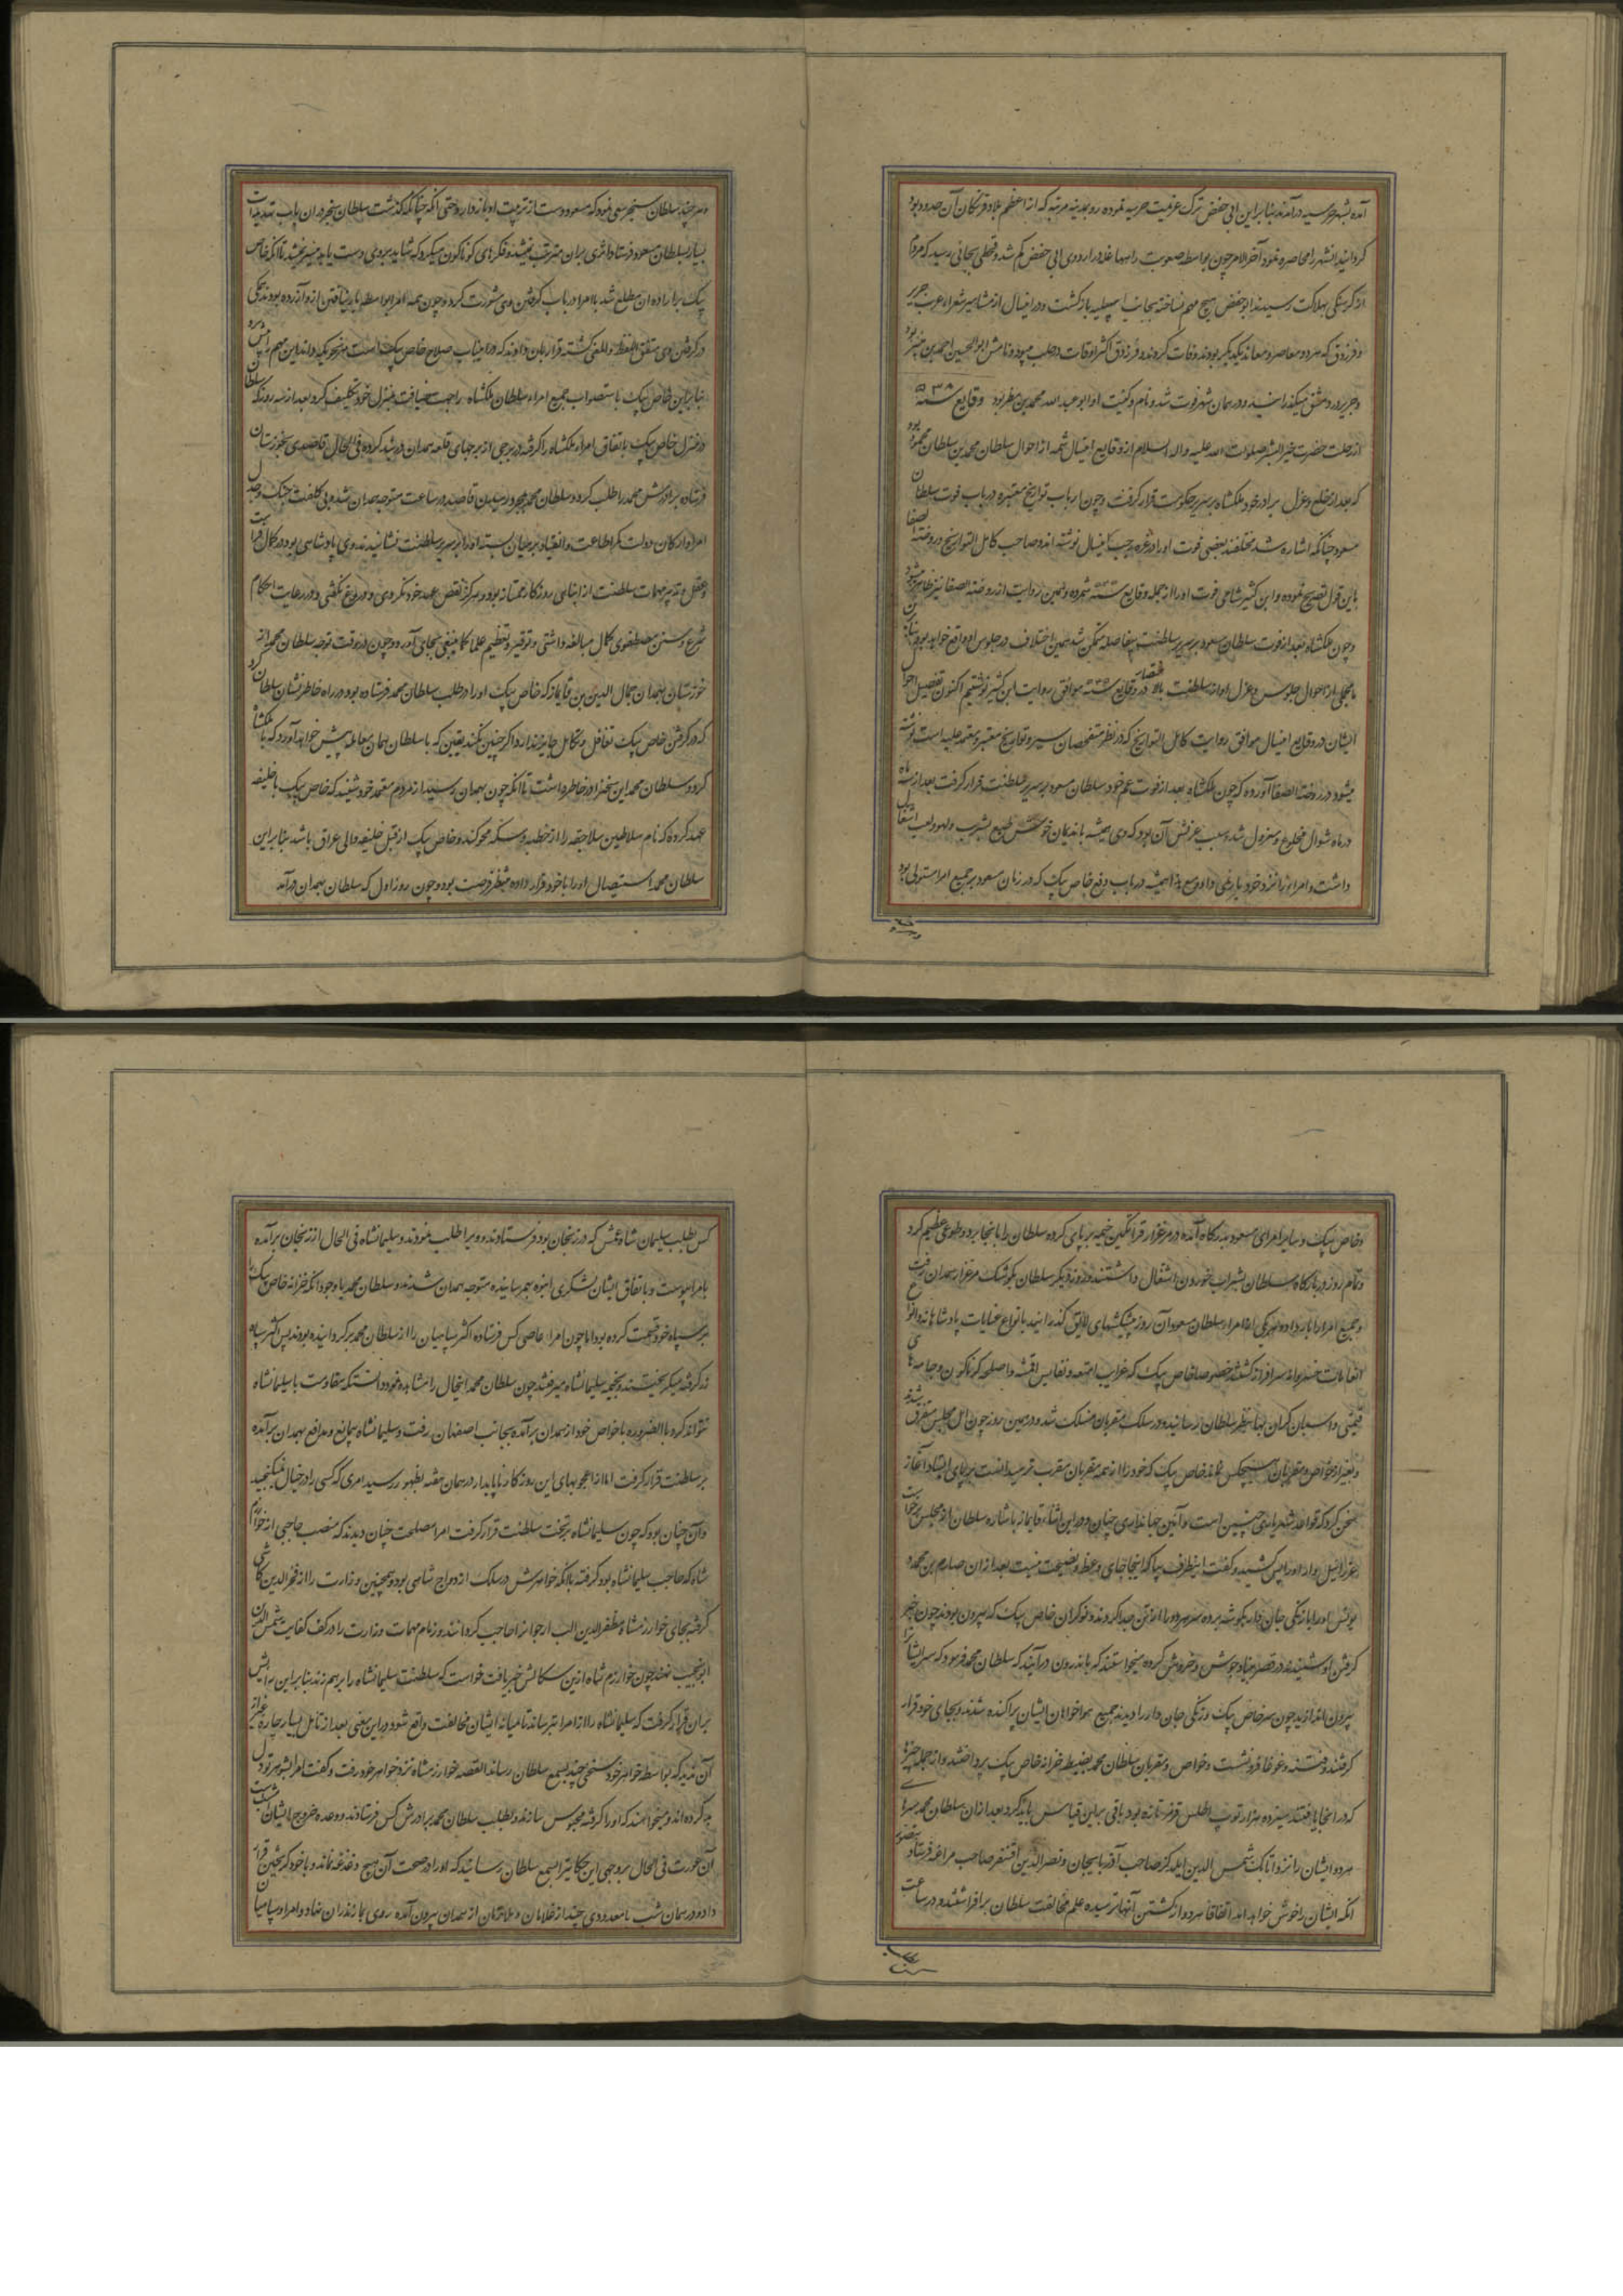 آمده بشهر حرسیه درآمدند بنابراین ابی حفض ترک عزیمت حربیه نموده روبمدینه مریه که از اعظم بلاد فرنکان آن حدود بود
کردانید انشهر را محاصره نمود آخر الامر چون بواسطه صعوبت راهها غله در اردوی ابی حفض کم شد و قحطی بجائی رسید که مردم
از کرسنکی بهلاکت رسیدند ابو حفض هیچ مهم نساخته بجانب اسبیلیه بازکشت و درانیسال از مشاهیر شعراء عرب جریر
و فرزوق که هر دو معاصر و معاند یکدیکر بودند وفات کردند و فرزوق اکثر اوقات در حلب میبود و نامش ابوالحسین احمد بن منیر بود
و جریر در دمشق میکذرانید و در همان شهر فوت شد و نام و کنیت او ابو عبدالله محمد بن بود وقایع سنه ۵۳۸
از رحلت حضرت خیر البشر صلوات الله علیه و اله السلام از وقایع انیسال شمه از احوال سلطان محمد بن سلطان محمود بود
که بعد از خلع و عزل برادر خود ملکشاه بر سریر حکومت قرار کرفت و چون ارباب تواریخ معتبره در باب فوت سلطان
مسعود چنانکه اشاره شد مختلفند بعضی فوت او را در غره رجب انیسال نوشته اند و صاحب کامل التواریخ و روضة الصفا
باین قول تصریح نموده و ابن کثیر شامی فوت او را از جمله وقایع سنه شمرده و همین روایت از روضة الصفا نیز ظاهر میشود
و چون ملکشاه بعد از فوت سلطان مسعود بر سریر سلطنت بیفاصله متمکن شد همین اختلاف در جلوس او واقع خواهد بود بنابران
ما مجملی از احوال جلوس و عزل او از سلطنت بالا در وقایع سنه ۵۳۵ موافق روایت ابن کثیر نوشتیم اکنون تفصیل احوال
ایشان در وقایع انیسال موافق روایت کامل التواریخ که در نظر متفحصان سیر و تواریخ معتبر و معتمد علیه است نوشته
میشود در روضة الصفا آورده که چون ملکشاه بعد از فوت عم خود سلطان مسعود بر سریر سلطنت قرار کرفت بعد از سه ماه
در ماه شوال مخلوع و معزول شد و سبب عزلش آن بود که وی همیشه باندیمان خوش طبع بشرب و لهو و لعب اشتغال
داشت و امرا را نزد خود بار نمی داد و مع هذا همیشه در باب دفع خاص بیک که در زمان سعود بر جمیع امرا مستولی بود
و هر چند سلطان سنجر سعی نمود که مسعود دست از تربیت او بازدارد حتی انکه چنانکه کذشت سلطان سنجر دران باب تهدیدات
بسیار بسلطان مسعود فرستاد اثری بران مترتب نمیشد و فکرهای کوناکون میکرد که شاید بروی دست یابد میسر نمیشد تا انکه خاص
بیک برین اراده ان مطلع شد با امرا در باب کرفتن وی مشورت کرد و چون همه امرا بواسطه بار نیافتن ازو آزرده بودند همکی
در کرفتن وی متفق اللفظ و المعنی کشته قرار بران دادند که درینباب صلاح خاص بیک است بهر نحو که داند این مهم را پیش برد
بنابراین خاص بیک باستصواب جمیع امراء سلطان ملکشاه راجهت ضیافت بمنزل خود تکلیف کرد بعد از سه روز که سلطان
در منزل خاص بیک باتفاق امراء ملکشاه را کرفته در برجی از برجهای قلعه همدان در بند کرده فی الحال قاصدی بخوزستان
فرستاده برادرش محمد را طلب کرد و سلطان محمد بمجرد رسیدن قاصد در ساعت متوجه همدان شده بی کلفت جنک و جدل
امرا و ارکان دولت کمر اطاعت و انقیاد بر میان بسته او را بر سریر سلطنت نشانیدند و وی پادشاهی بود در کمال فراست
و عقل و تدبیر مهمات سلطنت از ابنای روزکار ممتاز بود و هرکز نقض عهد خود نکردی و دروغ نکفتی و در رعایت احکام
شرع و سنن مصطفوی کمال مبالغه داشتی و توقیر و تعظیم علما کما ینبغی بجای آورد و چون در وقت توجه سلطان محمد از
خوزستان بهمدان جمال الدین بن قایماز که خاص بیک او را در طلب سلطان محمد فرستاده بود در راه خاطر نشان سلطان کرد
که در کرفتن خاص بیک تغافل و تکاهل جایز ندارد و اکر چنین نکند یقین که با سلطان همان معامله پیش خواهد آورد که با ملکشاه
کرد و سلطان محمد این سخن را در خاطر داشت تا انکه چون بهمدان رسید از مردم معتمد خود شنید که خاص بیک با خلیفه
عهد کرده که نام سلاطین سلاجقه را از خطبه و سکه محو کند و خاص بیک از قبل خلیفه والی عراق باشد بنابراین
سلطان محمد استیصال او را با خود قرار داده منتظر فرصت بود و چون روز اول که سلطان بهمدان درآمد
و خاص بیک و سایر امرای مسعود بدرکاه آمده در مرغزار قراتکین خیمه بر پای کرده سلطان را بانجا برد و طوی عظیم کرد
و تمام روز در بارکاه سلطان بشراب خوردن اشتغال داشتند و روز دیکر سلطان بکوشک مرغزار همدان رفت
و جمیع امرا را بار داده هر یکی از امراء سلطان مسعود آن روز پیشکشهای لایق کذرانید بانواع عنایات پادشاهانه و انواع
انعامات خسروانه سرافراز کشتند خصوصا خاص بیک که غرایب امتعه و نفایس اقمشه و اسلحه کوناکون و جامه های
قیمتی و اسبان کران بها بنظر سلطان رسانیده در سلک مقربان منسلک شد و در همین روز چون اهل مجلس متفرق شدند
و بغیر از خواص و مقربان هیچکس نماند خاص بیک که خود را از همه مقربان مقرب تر میدانست برپای ایستاد آغاز
سخن کرد که قواعد شهریاری چنین است و آئین جهانداری چنان و در این اثنا قایماز باشاره سلطان از مجلس برخواست
عزرائیل وار او را پس کشید و کفت اینطرف بیا که اینجا جای وعظ و نصیحت نیست بعد ازان صارم بن محمد
یونس او را با زنکی جاندار بکوشه برده سر هر دو را از تن جدا کردند و نوکران خاص بیک که بیرون بودند چون خبر
کرفتن او شنیدند در قصر بنیاد جوش و خروش کرده میخواستند که باندرون درآیند که سلطان محمد فرمود که سر ایشان را
بیرون اندازید چون سر خاص بیک و زنکی جاندار را دیدند جمیع هواخواهان ایشان پراکنده شدند و بجای خود قرار
کرفتند و فتنه و غوغا فرونشست و خواص و مقربان سلطان محمد بضبط خزانه خاص بیک پرداختند و از جمله چیزهایی
که در انجا یافتند سیزده هزار توپ اطلس قرمز تازه بود باقی براین قیاس باید کرد بعد ازان سلطان محمد سرهای
هر دو ایشان را نزد اتابک شمس الدین ایلدکز صاحب آذربایجان و نصر الدین آقسنقر صاحب مراغه فرستاد بتصور
انکه ایشان را خوش خواهد امد اتفاقا هر دو از کشتن آنها ترسیده علم مخالفت سلطان برافراشتند و در ساعت
کس بطلب سلیمان شاه عمش که در زنجان بود فرستادند و ویرا طلب نمودند و سلیمانشاه فی الحال از زنجان برآمده
بامرا پیوست و باتفاق ایشان لشکری انبوه بهم رسانیده متوجه همدان شدند و سلطان محمد باوجود انکه خزانه خاص بیک را
بر سپاه خود قسمت کرده بود اما چون امراء عاصی کس فرستاده اکثر سپاهیان را از سلطان محمد برکردانیده بودند پس اکثر سپاه
زر کرفته میکریختند و بخیمه سلیمانشاه میرفتند چون سلطان محمد انحال را مشاهده نمود دانست که مقاومت با سلیمانشاه
نتواند کرد بالضروره با خواص خود از همدان برآمده بجانب اصفهان رفت و سلیمانشاه بیمانع و مدافع بهمدان برآمده
بر سلطنت قرار کرفت اما از اعجوبهای این روزکار ناپایدار در همان هفته بظهور رسید امری که کسی را در خیال نمیکنجید
و آن چنان بود که چون سلیمانشاه بر تخت سلطنت قرار کرفت امرا مصلحت چنان دیدند که منصب حاجبی از خوارزم
شاه که حاجب سلیمانشاه بود کرفته با انکه خواهرش در سلک ازدواج شاهی بود و همچنین وزارت را از فخر الدین کاشی
کرفته بجای خوارزمشاه مظفر الدین الب ارجوا را حاجب کردانند و زمام مهمات وزارت را در کف کفایت شمس الدین
ابو نجیب نهند چون خوارزم شاه ازین سکالش خبر یافت خواست که سلطنت سلیمانشاه را برهم زند بنابراین رایش
بران قرار کرفت که سلیمانشاه را از امرا بترساند تا میانه ایشان مخالفت واقع شود و درین معنی بعد از تامل بسیار چاره غیر از
آن ندید که بواسطه خواهر خود سخنی چند بسمع سلطان رساند القصه خوارزمشاه نزد خواهر خود رفت و کفت امرا شوهر تو دل
بد کرده اند و میخواهند که او را کرفته محبوس سازند و بطلب سلطان محمد برادرش کس فرستادند و وعده خروج ایشان امشب است
آن عورت فی الحال بروجهی این حکایت را بسمع سلطان رسانید که او را در صحت آن هیچ دغدغه نماند و با خود کریختن قرار
داد و در همان شب با معدودی چند از غلامان و ملازمان از همدان بیرون آمده روی بمازندران نهاد و امرا و سپاهیان